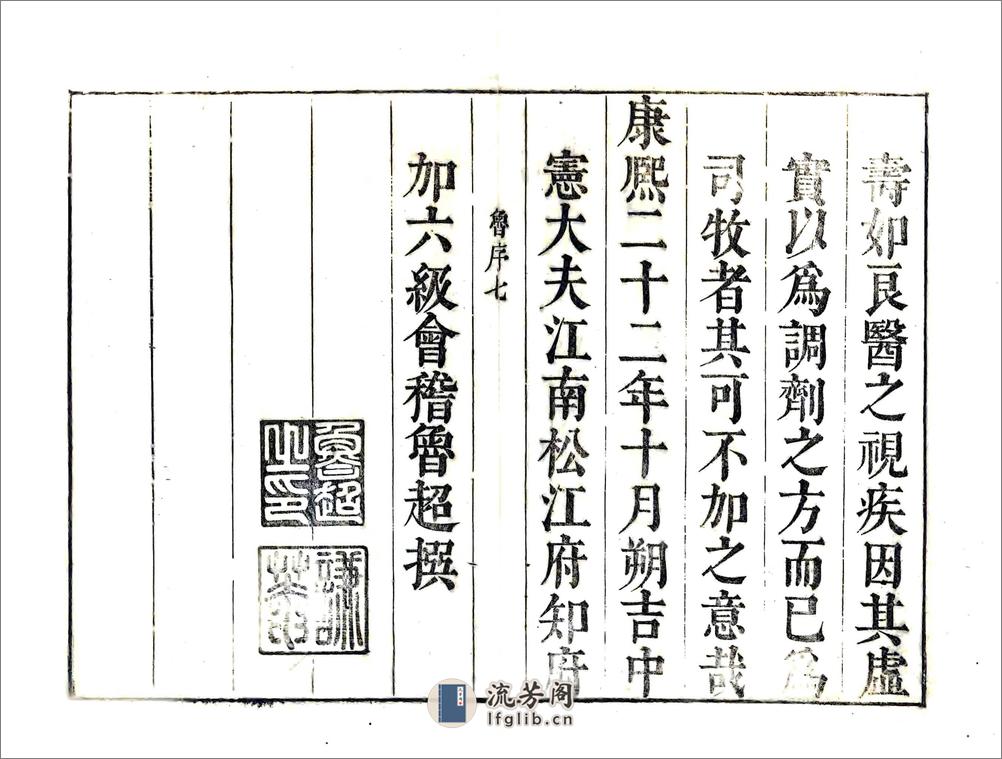 壽如良醫之視疾因其虛
實以爲調劑之方而已爲
司牧者其可不加之意哉
康熙二十二年十月朔吉中
憲大夫江南松江府知府
魯序七
加六級會稽魯超撰
魯超之印
謙菴
流芳阁
lfglib.cn